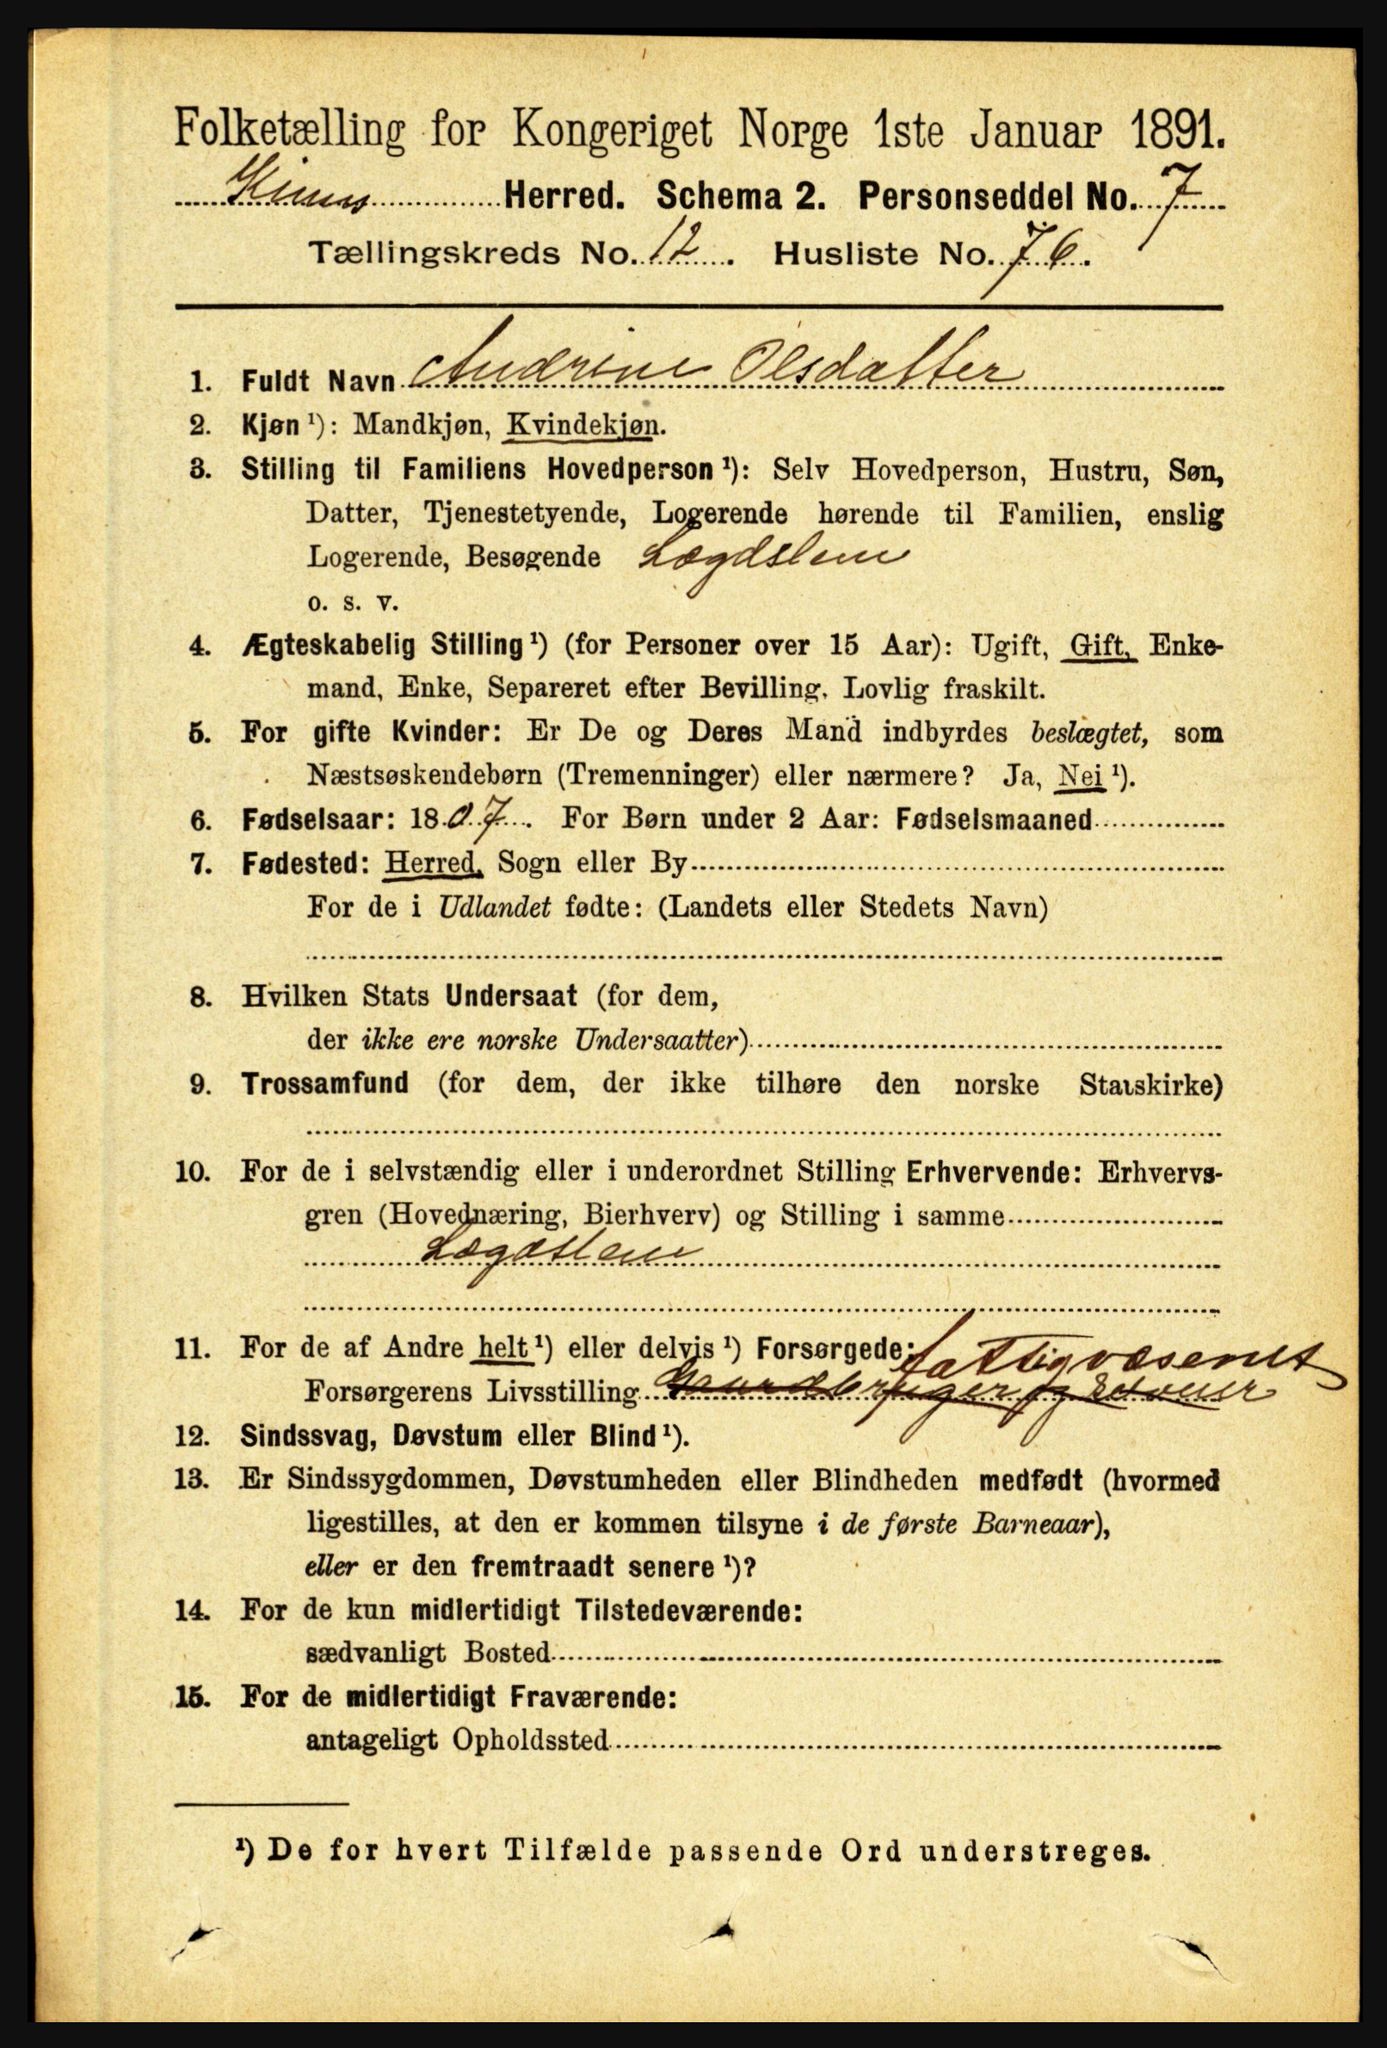 Folketælling for Kongeriget Norge 1ste Januar 1891.
Kinns Herred. Schema 2. Personseddel No. 7
Tællingskreds No. 12. Husliste No. 76.
1. Fuldt Navn Andrine Olsdatter
2. Kjøn ¹): Mandkjøn, Kvindekjøn.
3. Stilling til Familiens Hovedperson ¹): Selv Hovedperson, Hustru, Søn,
Datter, Tjenestetyende, Logerende hørende til Familien, enslig
Logerende, Besøgende Lægdslem
o. s. v.
4. Ægteskabelig Stilling ¹) (for Personer over 15 Aar): Ugift, Gift, Enke-
mand, Enke, Separeret efter Bevilling, Lovlig fraskilt.
5. For gifte Kvinder: Er De og Deres Mand indbyrdes beslægtet, som
Næstsøskendebørn (Tremenninger) eller nærmere? Ja, Nei ¹).
6. Fødselsaar: 1807. For Børn under 2 Aar: Fødselsmaaned
7. Fødested: Herred, Sogn eller By
For de i Udlandet fødte: (Landets eller Stedets Navn)
8. Hvilken Stats Undersaat (for dem,
der ikke ere norske Undersaatter)
9. Trossamfund (for dem, der ikke tilhøre den norske Statskirke)
10. For de i selvstændig eller i underordnet Stilling Erhvervende: Erhvervs-
gren (Hovednæring, Bierhverv) og Stilling i samme
Lægdslem
11. For de af Andre helt ¹) eller delvis ¹) Forsørgede: fattigvæsenet
Forsørgerens Livsstilling Gaardbruger og
12. Sindssvag, Døvstum eller Blind ¹).
13. Er Sindssygdommen, Døvstumheden eller Blindheden medfødt (hvormed
ligestilles, at den er kommen tilsyne i de første Barneaar),
eller er den fremtraadt senere ¹)?
14. For de kun midlertidigt Tilstedeværende:
sædvanligt Bosted
15. For de midlertidigt Fraværende:
antageligt Opholdssted
¹) De for hvert Tilfælde passende Ord understreges.